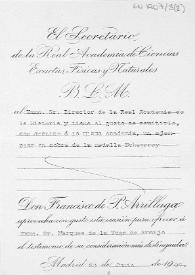 El Secretario
de la Real Academia de Ciencias
Exactas, Físicas y Naturales
B. L. M.
al Exmo. Sr. Director de la Real Academia de
la Historia y tiene el gusto de
con destino a la misma Academia, un ejem-
plar en cobre de la medalla Echegaray
Don Francisco de P. Arrillaga
aprovecha con gusto esta ocasión para ofrecer á
Exmo. Sr. Marqués de la Vega de Armijo
el testimonio de su consideración más distinguida
Madrid de de 190